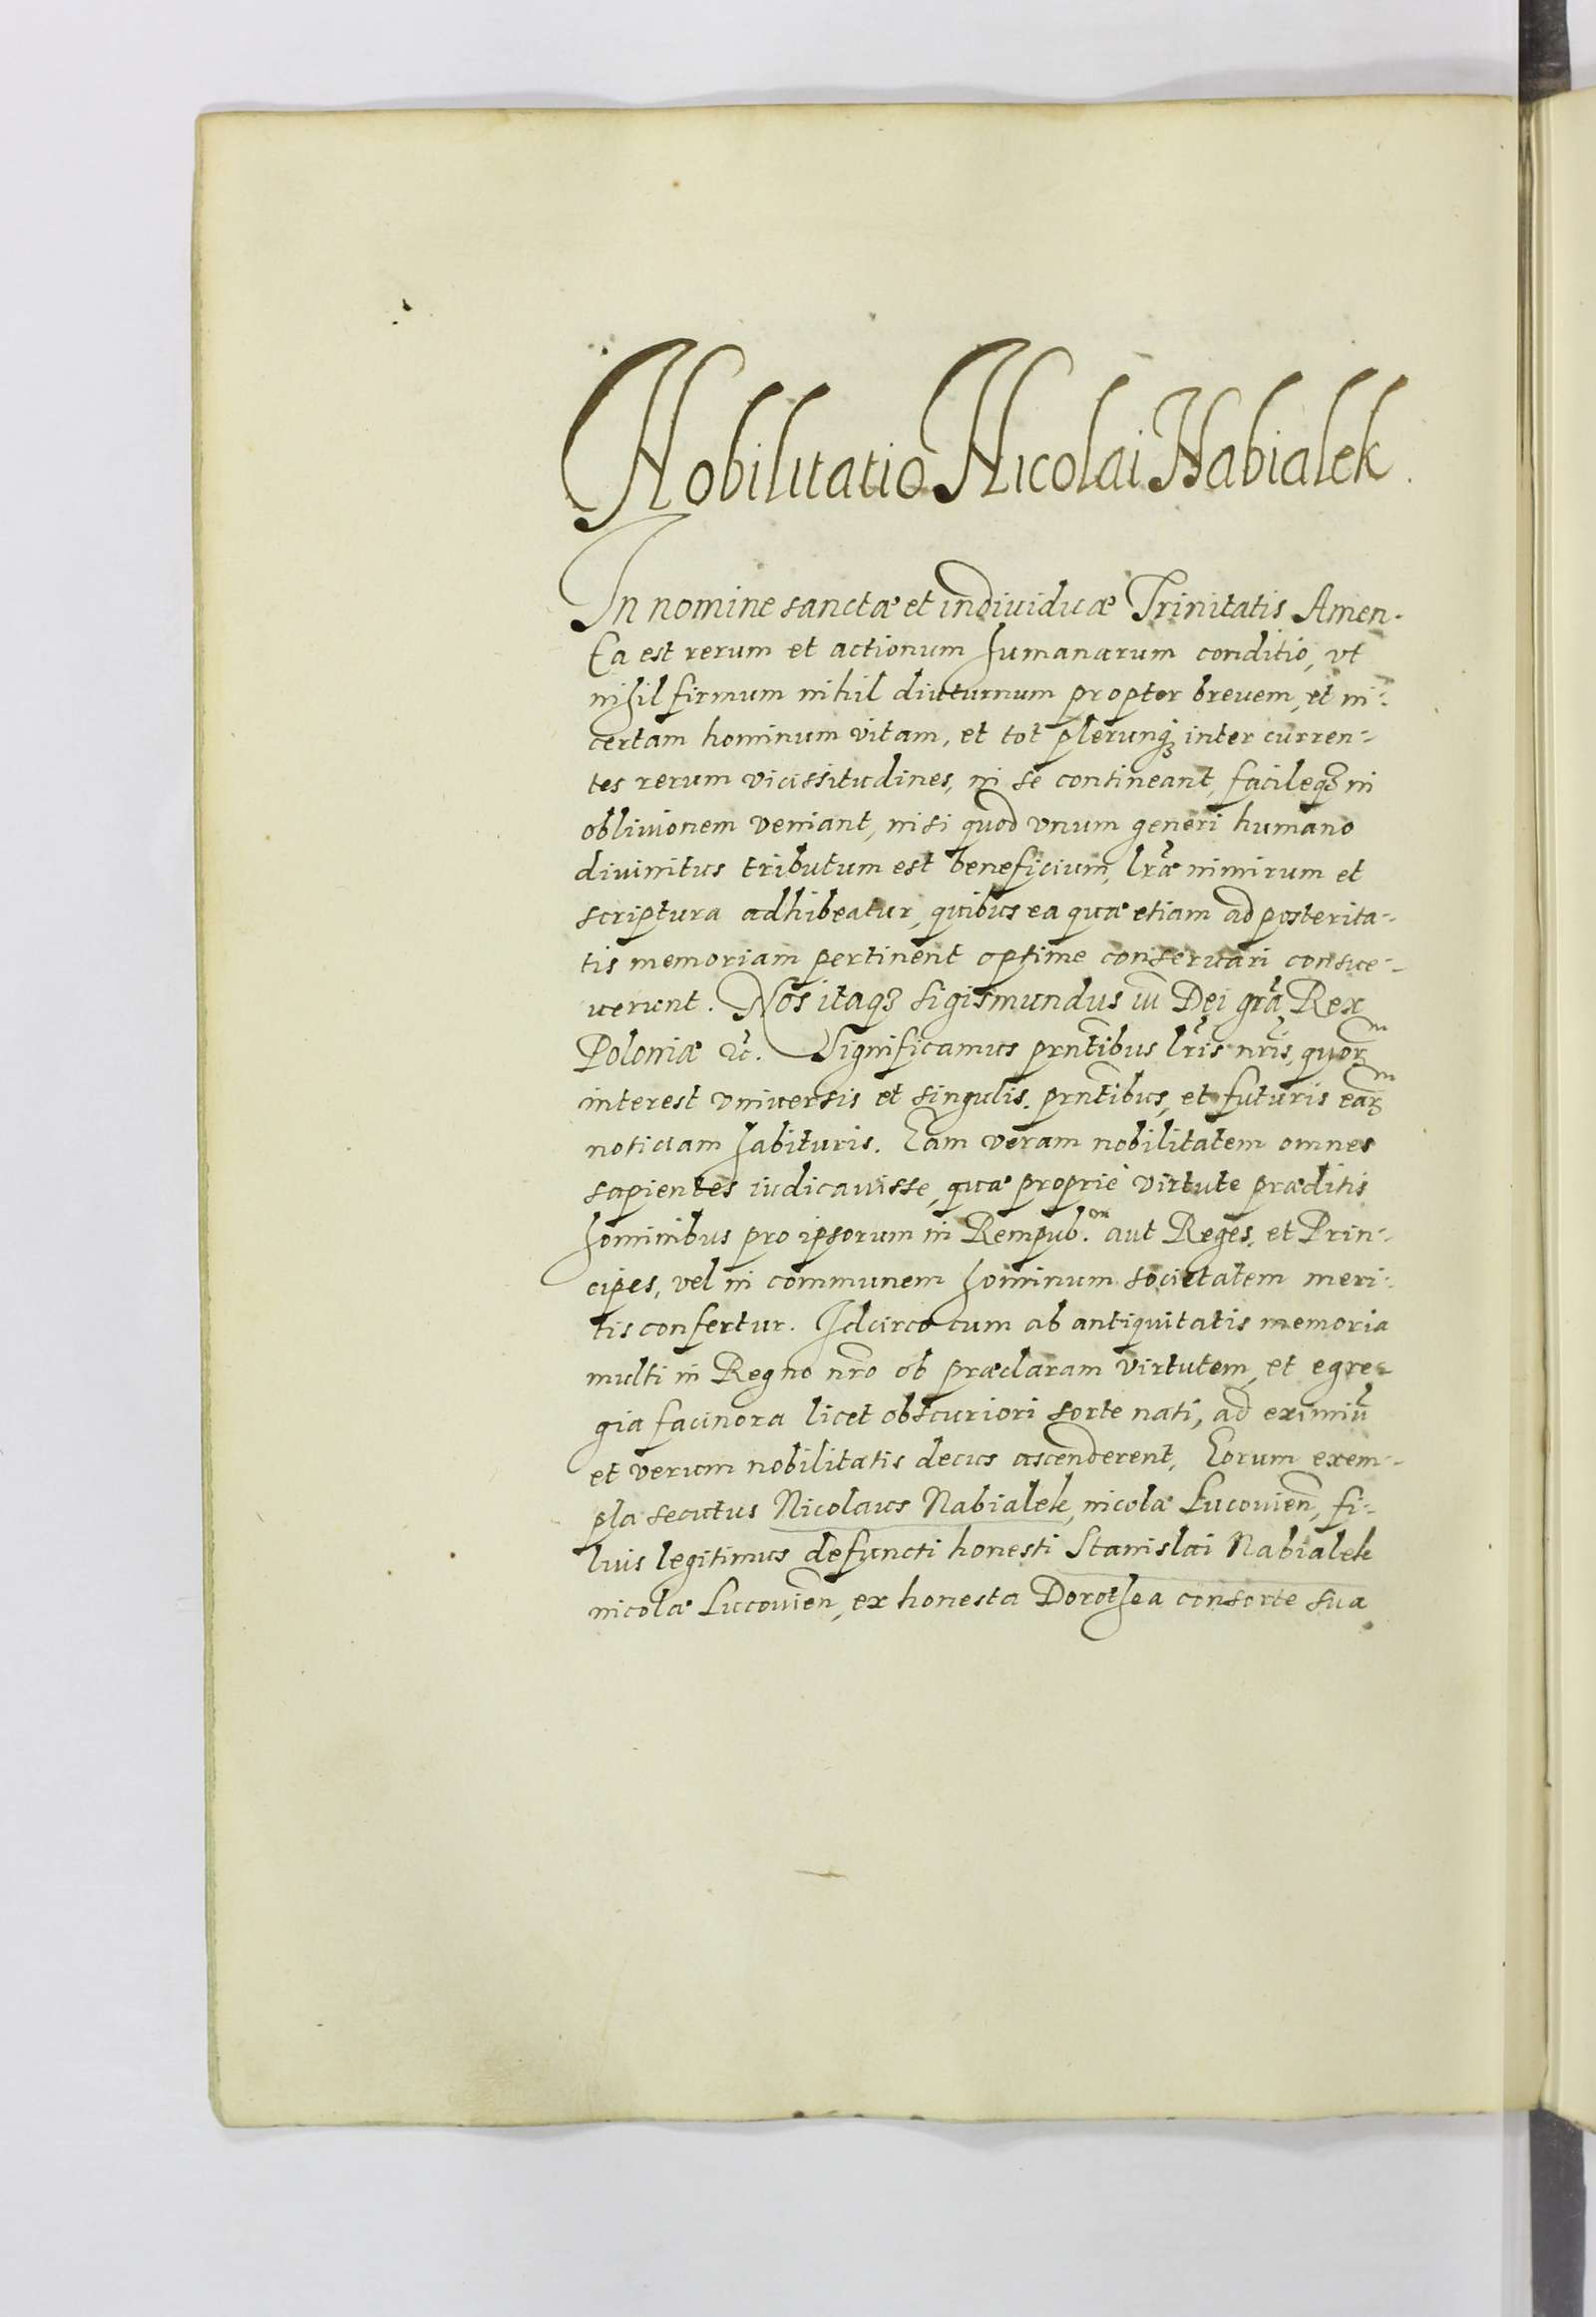 Nobilitatio Nicolai Nabialek.
In nomine sanctæ et individuæ Trinitatis Amen.
Ea est rerum et actionum humanarum conditio, vt
nihil firmum nihil diuturnum propter breuem, et in-
certam hominum vitam, et tot plerunq₃ inter curren-
tes rerum vicissitudines, in se contineant, facileq₃ in
obliuionem veniant, nisi quod vnum generi humano
diuinitus tributum est beneficium, lr̃æ nimirum et
scriptura adhibeatur, quibus ea quæ etiam ad posterita-
tis memoriam pertinent optime conseruari consue-
uerunt. Nos itaq₃ Sigismundus iii Dei grã Rex
Poloniæ &c. Significamus prñtibus lr̃is nr̃is, quorᵐ
interest vniuersis et singulis, prñtibus, et futuris earᵐ
notitiam habituris. Eam veram nobilitatem omnes
sapientes iudicauisse, quæ proprié virtute præditis
hominibus pro ipsorum in Rempub. aut Reges, et Prin-
cipes, vel in communem hominum societatem meri-
tis confertur. Idcirco cum ab antiquitatis memoria
multi in Regno nr̃o ob præclaram virtutem, et egre-
gia facinora licet obscuriori sorte nati, ad eximiũ
et verum nobilitatis decus ascenderent, Eorum exem-
pla secutus Nicolaus Nabialek, incola Lucouien̄, fi-
lius legitimus defuncti honesti Stanislai Nabialek
incolæ Lucouien̄, ex honesta Dorothea consorte sua